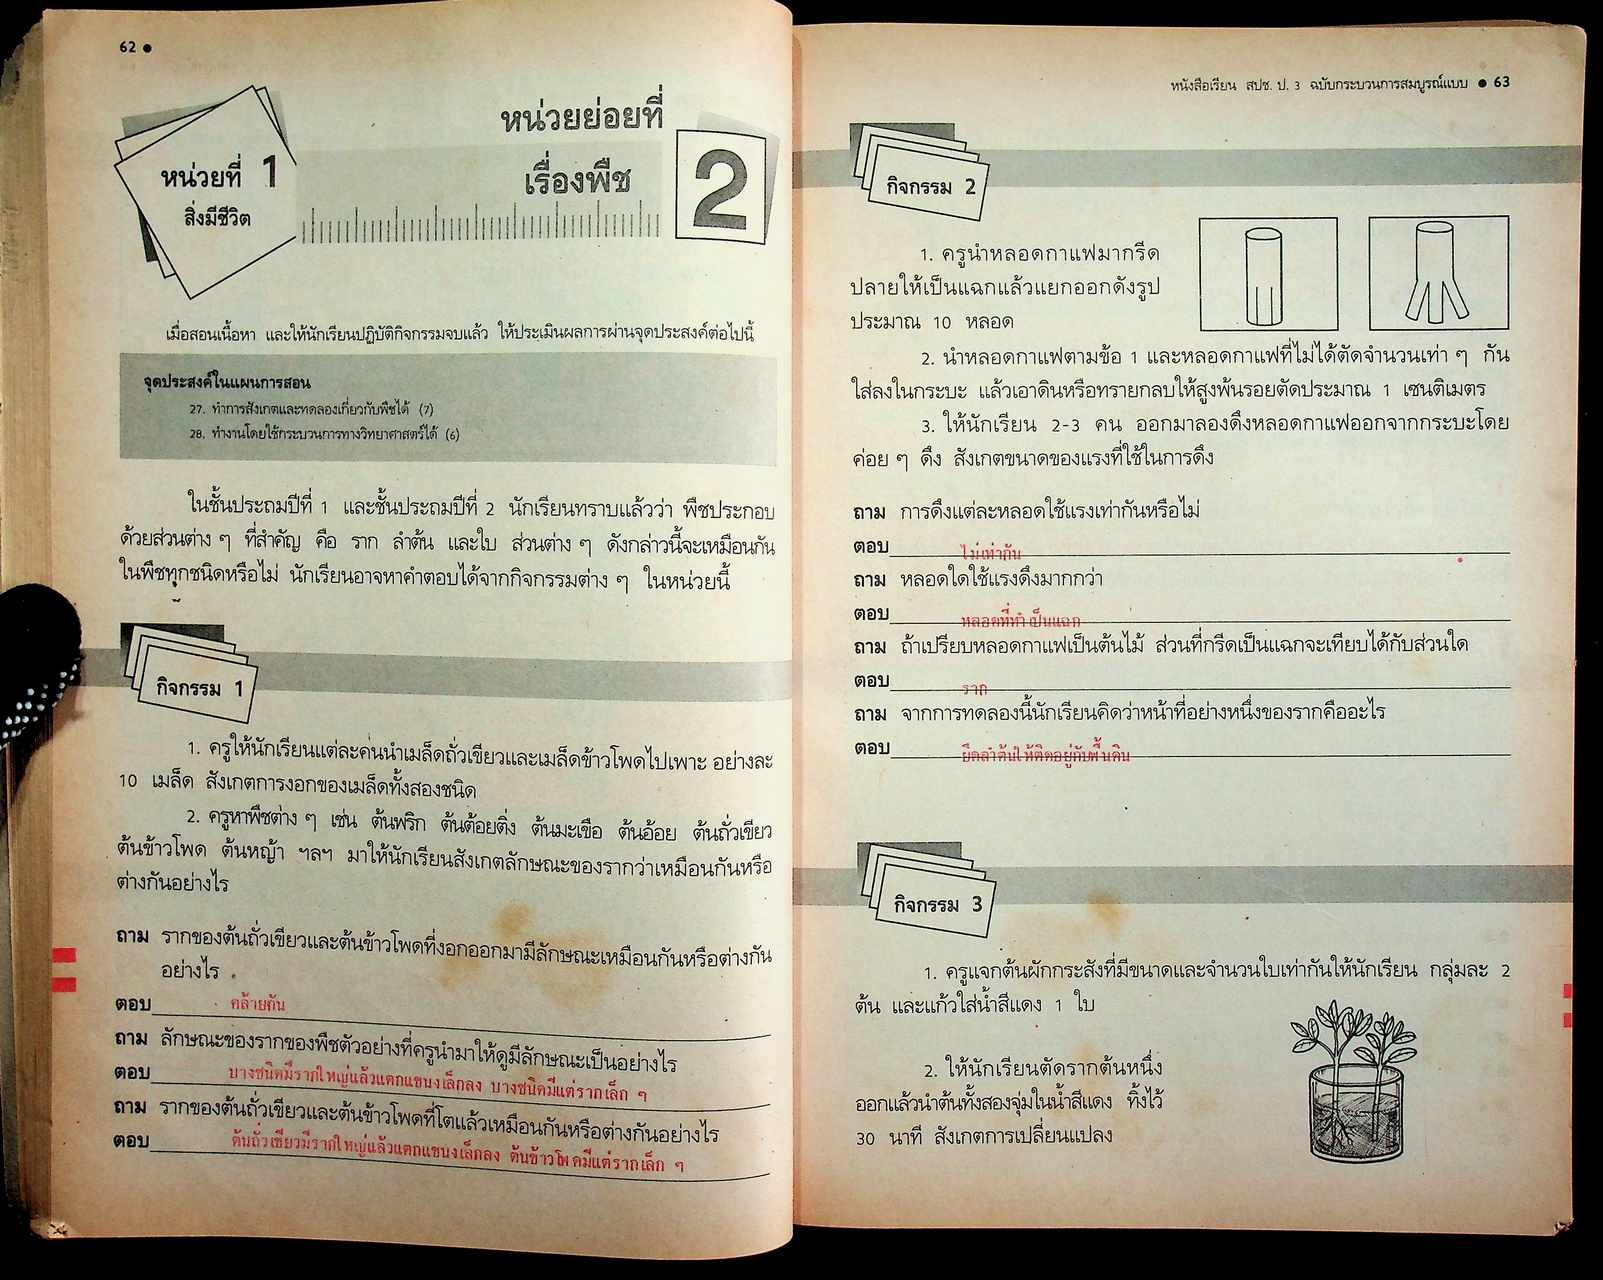 62 ●
หน่วยที่ 1
สิ่งมีชีวิต
หน่วยย่อยที่
เรื่องพืช
2
เมื่อสอนเนื้อหา และให้นักเรียนปฏิบัติกิจกรรมจบแล้ว ให้ประเมินผลการผ่านจุดประสงค์ต่อไปนี้
จุดประสงค์ในแผนการสอน
27. ทำการสังเกตและทดลองเกี่ยวกับพืชได้ (7)
28. ทำงานโดยใช้กระบวนการทางวิทยาศาสตร์ได้ (6)
ในชั้นประถมปีที่ 1 และชั้นประถมปีที่ 2 นักเรียนทราบแล้วว่า พืชประกอบ
ด้วยส่วนต่าง ๆ ที่สำคัญ คือ ราก ลำต้น และใบ ส่วนต่าง ๆ ดังกล่าวนี้จะเหมือนกัน
ในพืชทุกชนิดหรือไม่ นักเรียนอาจหาคำตอบได้จากกิจกรรมต่าง ๆ ในหน่วยนี้
กิจกรรม 1
1. ครูให้นักเรียนแต่ละคนนำเมล็ดถั่วเขียวและเมล็ดข้าวโพดไปเพาะ อย่างละ
10 เมล็ด สังเกตการงอกของเมล็ดทั้งสองชนิด
2. ครูหาพืชต่าง ๆ เช่น ต้นพริก ต้นต้อยติ่ง ต้นมะเขือ ต้นอ้อย ต้นถั่วเขียว
ต้นข้าวโพด ต้นหญ้า ฯลฯ มาให้นักเรียนสังเกตลักษณะของรากว่าเหมือนกันหรือ
ต่างกันอย่างไร
ถาม รากของต้นถั่วเขียวและต้นข้าวโพดที่งอกออกมามีลักษณะเหมือนกันหรือต่างกัน
อย่างไร
ตอบ คล้ายกัน
ถาม ลักษณะของรากของพืชตัวอย่างที่ครูนำมาให้ดูมีลักษณะเป็นอย่างไร
ตอบ บางชนิดมีรากใหญ่แล้วแตกแขนงเล็กลง บางชนิดมีแต่รากเล็ก ๆ
ถาม รากของต้นถั่วเขียวและต้นข้าวโพดที่โตแล้วเหมือนกันหรือต่างกันอย่างไร
ตอบ ต้นถั่วเขียวมีรากใหญ่แล้วแตกแขนงเล็กลง ต้นข้าวโพดมีแต่รากเล็ก ๆ
หนังสือเรียน สปช. ป. 3 ฉบับกระบวนการสมบูรณ์แบบ ● 63
กิจกรรม 2
1. ครูนำหลอดกาแฟมากรีด
ปลายให้เป็นแฉกแล้วแยกออกดังรูป
ประมาณ 10 หลอด
2. นำหลอดกาแฟตามข้อ 1 และหลอดกาแฟที่ไม่ได้ตัดจำนวนเท่า ๆ กัน
ใส่ลงในกระบะ แล้วเอาดินหรือทรายกลบให้สูงพ้นรอยตัดประมาณ 1 เซนติเมตร
3. ให้นักเรียน 2-3 คน ออกมาลองดึงหลอดกาแฟออกจากกระบะโดย
ค่อย ๆ ดึง สังเกตขนาดของแรงที่ใช้ในการดึง
ถาม การดึงแต่ละหลอดใช้แรงเท่ากันหรือไม่
ตอบ ไม่เท่ากัน
ถาม หลอดใดใช้แรงดึงมากกว่า
ตอบ หลอดที่ทำเป็นแฉก
ถาม ถ้าเปรียบหลอดกาแฟเป็นต้นไม้ ส่วนที่กรีดเป็นแฉกจะเทียบได้กับส่วนใด
ตอบ ราก
ถาม จากการทดลองนี้นักเรียนคิดว่าหน้าที่อย่างหนึ่งของรากคืออะไร
ตอบ ยึดลำต้นให้ติดอยู่กับพื้นดิน
กิจกรรม 3
1. ครูแจกต้นผักกระสังที่มีขนาดและจำนวนใบเท่ากันให้นักเรียน กลุ่มละ 2
ต้น และแก้วใส่น้ำสีแดง 1 ใบ
2. ให้นักเรียนตัดรากต้นหนึ่ง
ออกแล้วนำต้นทั้งสองจุ่มในน้ำสีแดง ทิ้งไว้
30 นาที สังเกตการเปลี่ยนแปลง